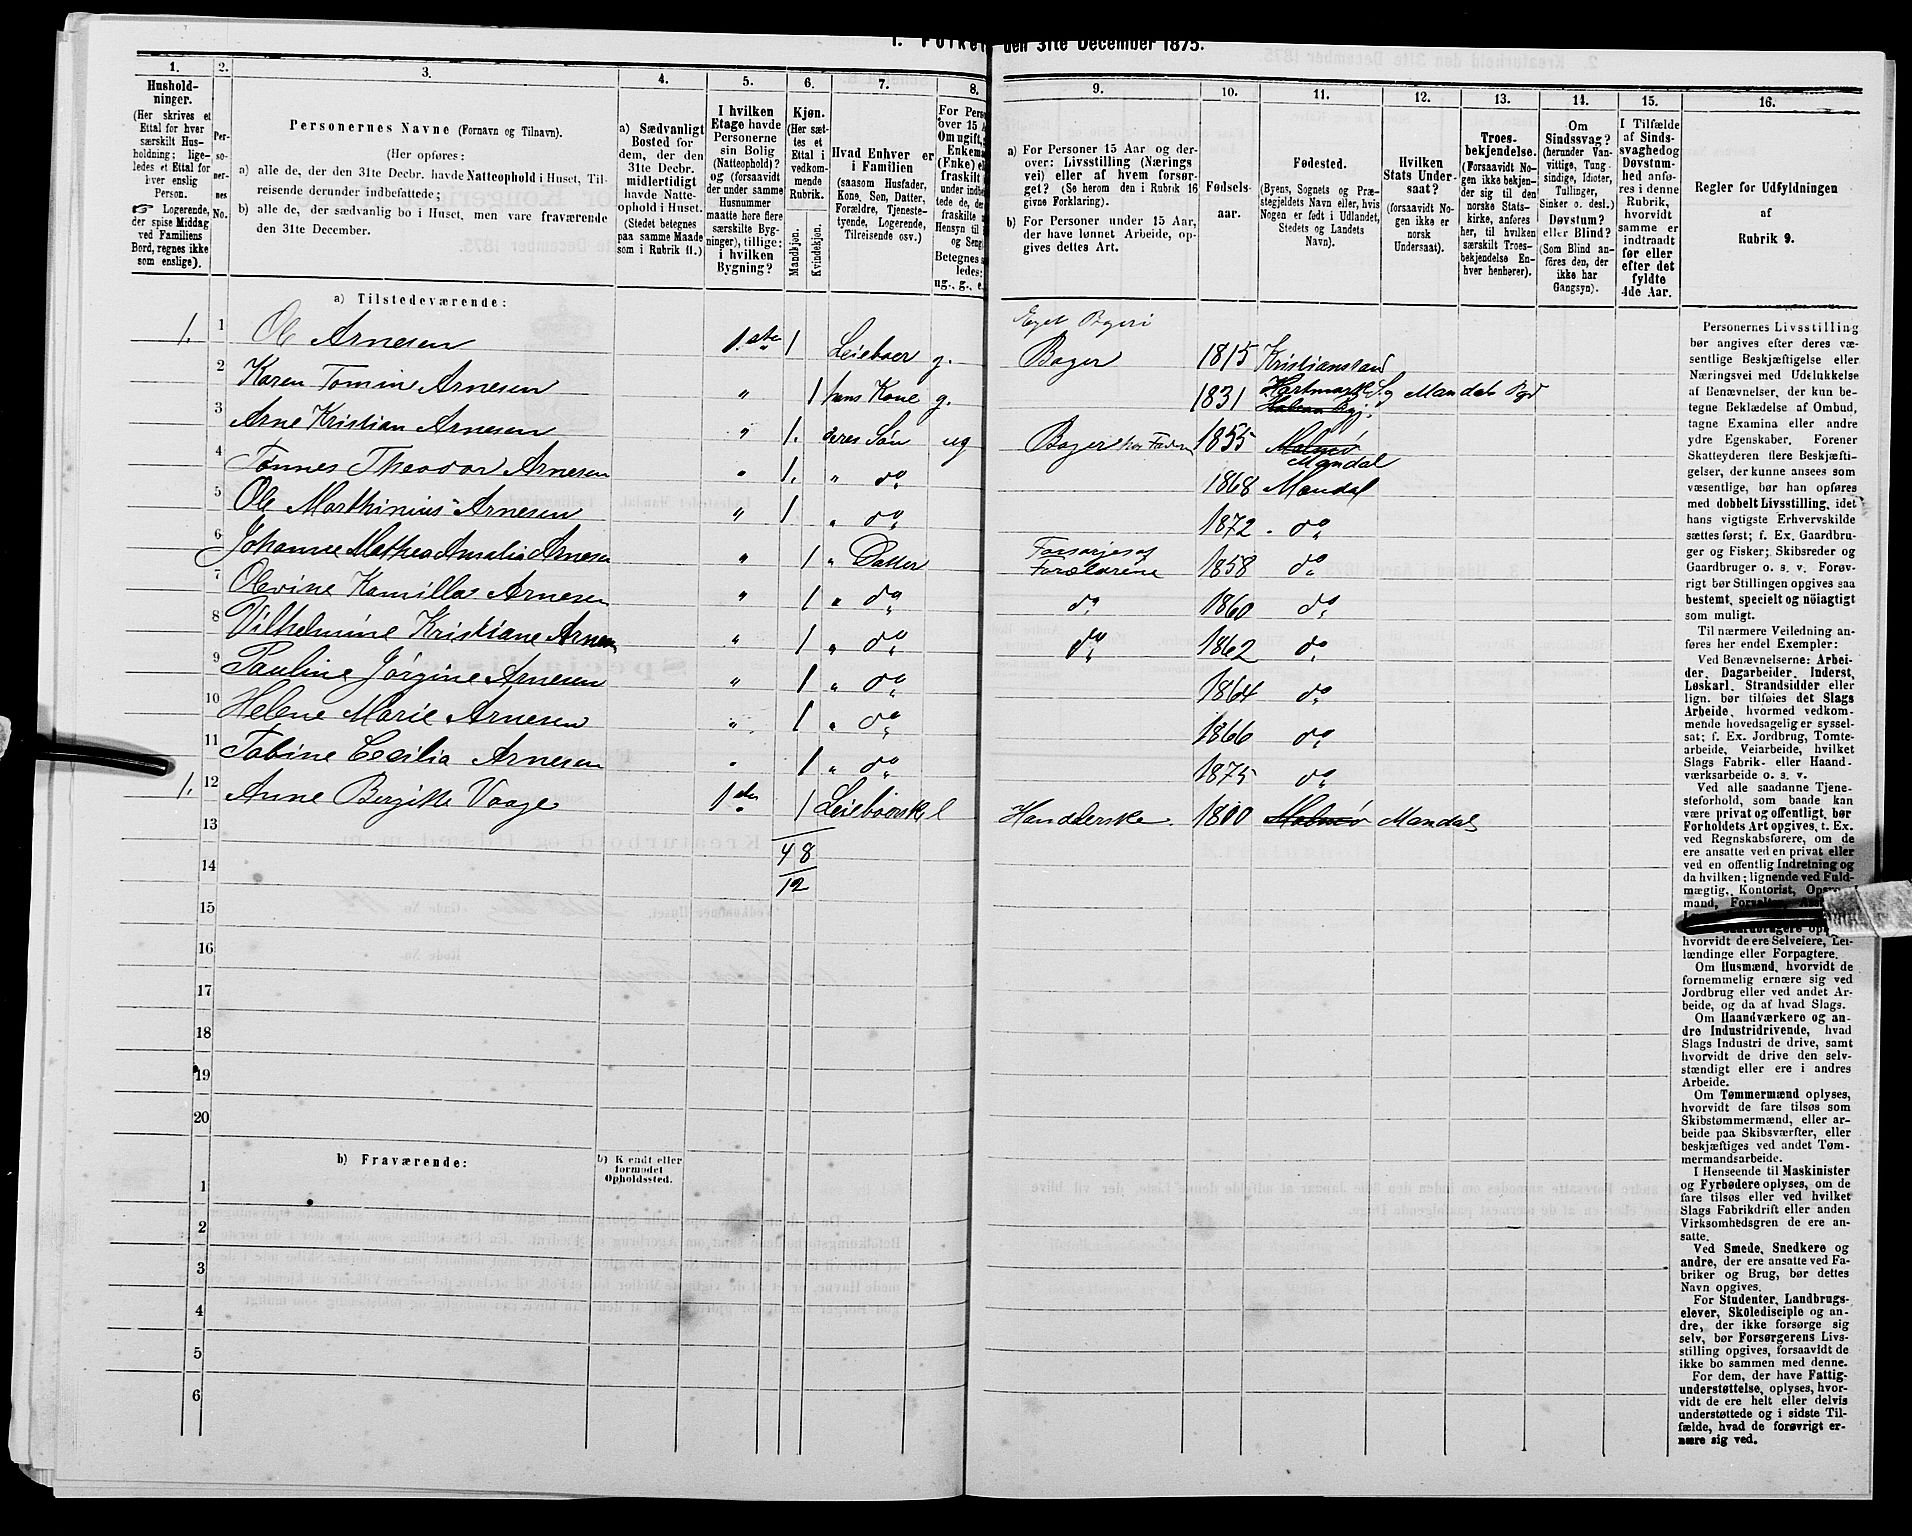 1. Folket den 31te December 1875.
1. 2. 3. 4. 5. 6. 7. 8. 9. 10. 11. 12. 13. 14. 15. 16.
Hushold-
ninger.
(Her skrives et
Ettal for hver
særskilt Hus-
holdning; lige-
ledes et Ettal for
hver enslig
Person.
☞ Logerende,
der spise Middag
ved Familiens
Bord, regnes ikke
som enslige).
Per-
so-
ner-
nes
No.
Personernes Navne (Fornavn og Tilnavn).
(Her opføres:
a) alle de, der den 31te Decbr. havde Natteophold i Huset, Til-
reisende derunder indbefattede;
b) alle de, der sædvanlig bo i Huset, men vare fraværende
den 31te December.
a) Sædvanligt
Bosted for
dem, der den
31te Decbr.
midlertidigt
havde Natte-
ophold i Huset.
(Stedet betegnes
paa samme Maade
som i Rubrik 11.)
I hvilken
Etage havde
Personerne
sin Bolig
(Natteophold)?
og (forsaavidt
der under samme
Husnummer
maatte høre flere
særskilte Byg-
ninger), tillige:
i hvilken
Bygning?
Kjøn.
(Her sæt-
tes et
Ettal i
vedkom-
mende
Rubrik.
Mandkjøn.
Kvindekjøn.
Hvad Enhver er
i Familien
(saasom Husfader,
Kone, Søn, Datter,
Forældre, Tjeneste-
tyende, Logerende,
Tilreisende osv.)
For Perso
over 15 A
Om ugift,
Enkema
(Fnke) el
fraskilt
under indbe-
tede de, der
fraskilte
Hensyn til
og Seng
Betegnes s
ledes:
ug., g., e.
a) For Personer 15 Aar og der-
over: Livsstilling (Nærings
vei) eller af hvem forsør-
get? (Se herom den i Rubrik 16
givne Forklaring).
b) For Personer under 15 Aar,
der have lønnet Arbeide, op-
gives dettes Art.
Fødsels-
aar.
Fødested.
(Byens, Sognets og Præ-
stegjeldets Navn eller, hvis
Nogen er født i Udlandet,
Stedets og Landets
Navn).
Hvilken
Stats Under-
saat?
(forsaavidt No-
gen ikke er
norsk
Undersaat).
Troes-
bekjendelse.
(Forsaavidt No-
gen ikke bekjen-
der sig til den
norske Stats-
kirke, anføres
her, til hvilken
særskilt Troes-
bekjendelse En-
hver henhører).
Om
Sindssvag?
(herunder Van-
vittige, Tung-
sindige, Idioter,
Tullinger,
Sinker o. desl.)
Døvstum?
eller Blind?
(Som Blind an-
føres den, der
ikke har
Gangsyn).
I Tilfælde
af Sinds-
svaghed og
Døvstum-
hed anfø-
res i denne
Rubrik,
hvorvidt
samme er
indtraadt
før eller
efter det
fyldte
4de Aar.
Regler for Udfyldningen
af
Rubrik 9.
a) Tilstedeværende:
Eget Bageri
1. 1 Ole Arnesen 1. ste 1 Leieboer g. Bager 1815 Kristianssand
2 Karen Tomine Arnesen " 1 hans Kone g. 1831 Hartmark S. Mandals Pgd
3 Arne Kristian Arnesen " 1. deres Søn ug Bager hos Faderen 1855 Malmø
Mandal
4 Tønnes Theodor Arnesen " 1. " do 1868 Mandal
5 Ole Marthinius Arnesen " 1 " do 1872 do
6 Johanne Mathea Amalia Arnesen " 1 " Datter Forsørjes af
Forældrene 1858 do
7 Olevine Kamilla Arnesen " 1 " do do 1860 do
8 Vilhelmine Kristiane Arnesen " 1 " do do 1862 do
9 Pauline Jørgine Arnesen " 1 " do 1864 do
10 Helene Marie Arnesen " 1 " do 1866 do
11 Tobine Cecilia Arnesen " 1 " do 1875 do
1. 12 Anne Bergitte Vaage 1ste 1 Leieboerske Handlerske. 1800 Malmø Mandal
13
4 8
14
12
15
16
17
18
19
20
b) Fraværende:
b) Kjendt eller
formodet
Opholdssted.
1
2
3
4
5
6
Personernes Livsstilling
bør angives efter deres væ-
sentlige Beskjæftigelse eller
Næringsvei med Udelukkelse
af Benævnelser, der kun be-
tegne Beklædelse af Ombud,
tagne Examina eller andre
ydre Egenskaber. Forener
Skatteyderen flere Beskjæfti-
gelser, der kunne ansees som
væsentlige, bør han opføres
med dobbelt Livsstilling, idet
hans vigtigste Erhvervskilde
sættes først; f. Ex. Gaardbru-
ger og Fisker; Skibsreder og
Gaardbruger o. s. v. Forøv-
rigt bør Stillingen opgives saa
bestemt, specielt og nöiagtigt
som muligt.
Til nærmere Veiledning an-
føres her endel Exempler:
Ved Benævnelserne: Arbei-
der, Dagarbeider, Inderst,
Løskarl, Strandsidder eller
lign. bør tilføies det Slags
Arbeide, hvormed vedkom-
mende hovedsagelig er syssel-
sat; f. Ex. Jordbrug, Tomte-
arbeide, Veiarbeide, hvilket
Slags Fabrik- eller Haand-
værksarbeide o. s. v.
Ved alle saadanne Tjene-
steforhold, som baade kan
være privat og offentligt, bør
Forholdets Art opgives, t. Ex.
ved Regnskabsførere, om de
ere ansatte ved en privat eller
ved en offentlig Indretning og
da hvilken; lignende ved Fuld-
mægtig, Kontorist, Opsyns-
mand, Forvalter,
Gaardbrugere
hvorvidt de ere Selveiere, Lei-
lændinge eller Forpagtere.
Om Husmænd, hvorvidt de
fornemmelig ernære sig ved
Jordbrug eller ved andet Ar-
beide, og da af hvad Slags.
Om Haandværkere og an-
dre Industridrivende, hvad
Slags Industri de drive, samt
hvorvidt de drive den selv-
stændigt eller ere i andres
Arbeide.
Om Tømmermænd oplyses,
hvorvidt de fare tilsøs som
Skibstømmermænd, eller ar-
beide paa Skibsværfter, eller
beskjæftiges ved andet Tøm-
mermandsarbeide.
I Henseende til Maskinister
og Fyrbødere oplyses, om de
fare tilsøs eller ved hvilket
Slags Fabrikdrift eller anden
Virksomhedsgren de ere an-
satte.
Ved Smede, Snedkere og
andre, der ere ansatte ved Fa-
briker og Brug, bør dettes
Navn opgives.
For Studenter, Landbrugs-
elever, Skoledisciple og an-
dre, der ikke forsørge sig
selv, bør Forsørgerens Livs-
stilling opgives, forsaavidt de
ikke bo sammen med denne.
For dem, der have Fattig-
understøttelse, oplyses, hvor-
vidt de ere helt eller delvis
understøttede og i sidste Til-
fælde, hvad de forøvrigt er-
nære sig ved.